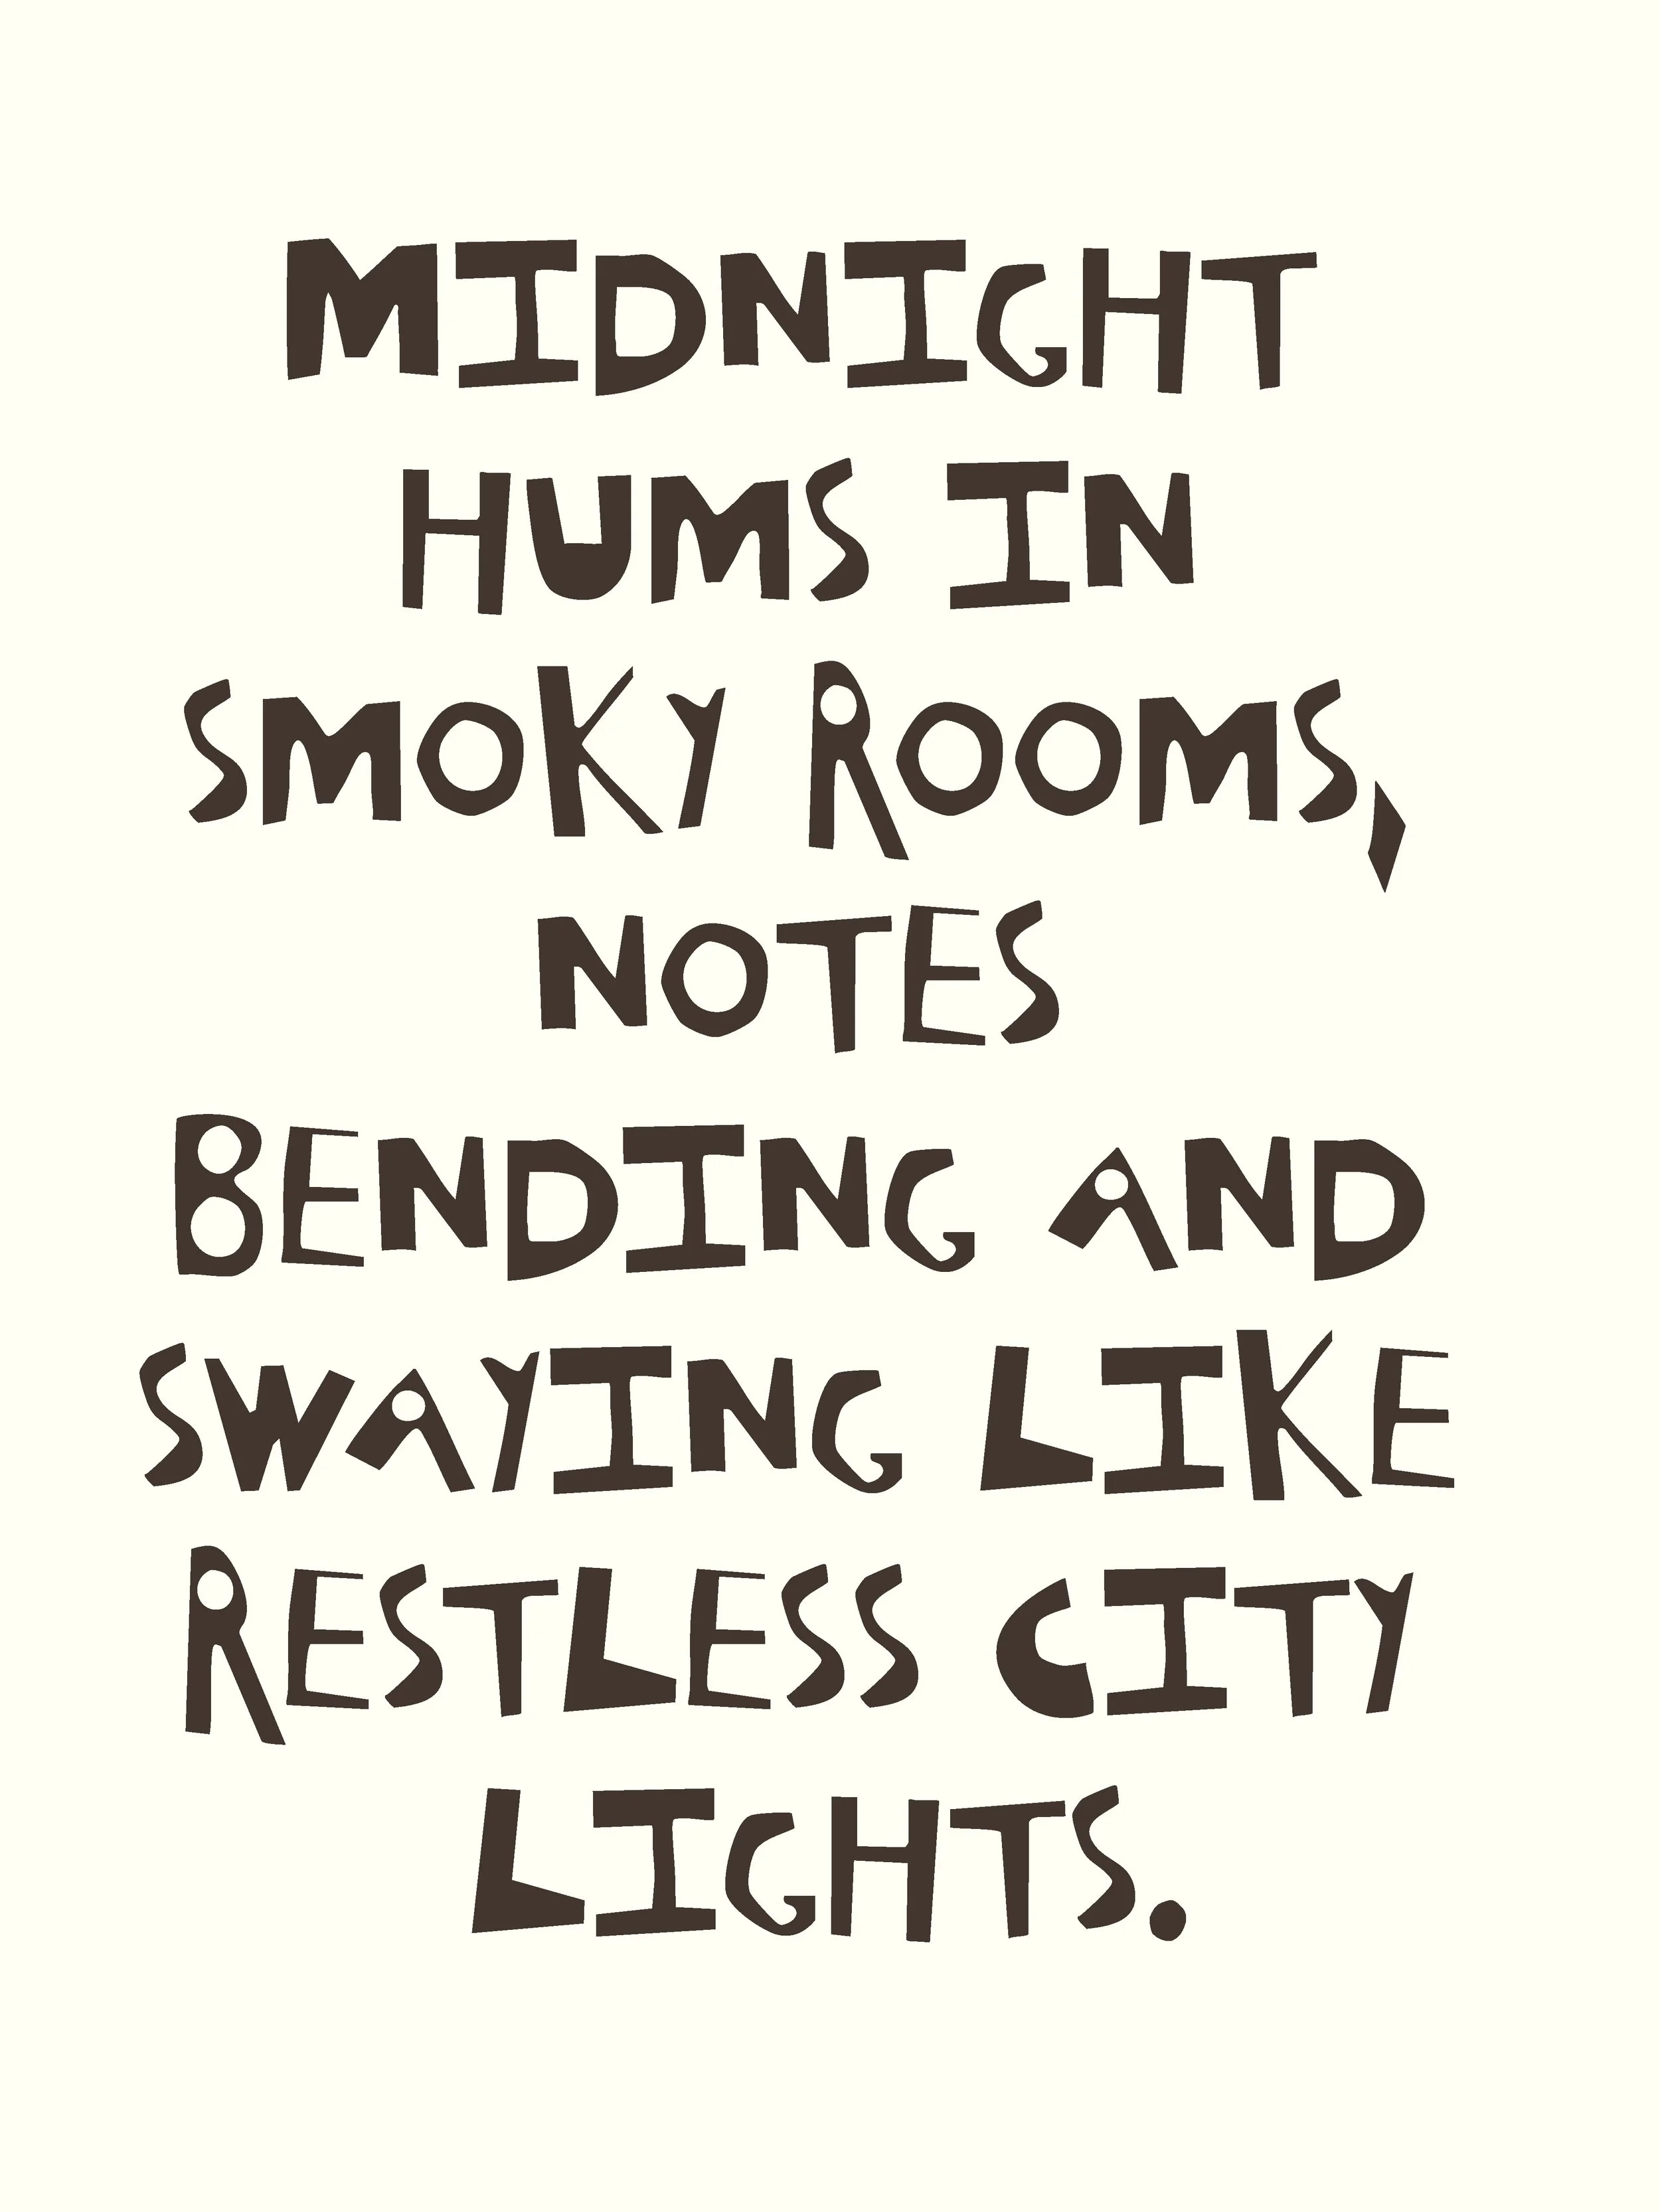 MIDNIGHT
HUMS IN
SMOKY ROOMS,
NOTES
BENDING AND
SWAYING LIKE
RESTLESS CITY
LIGHTS.